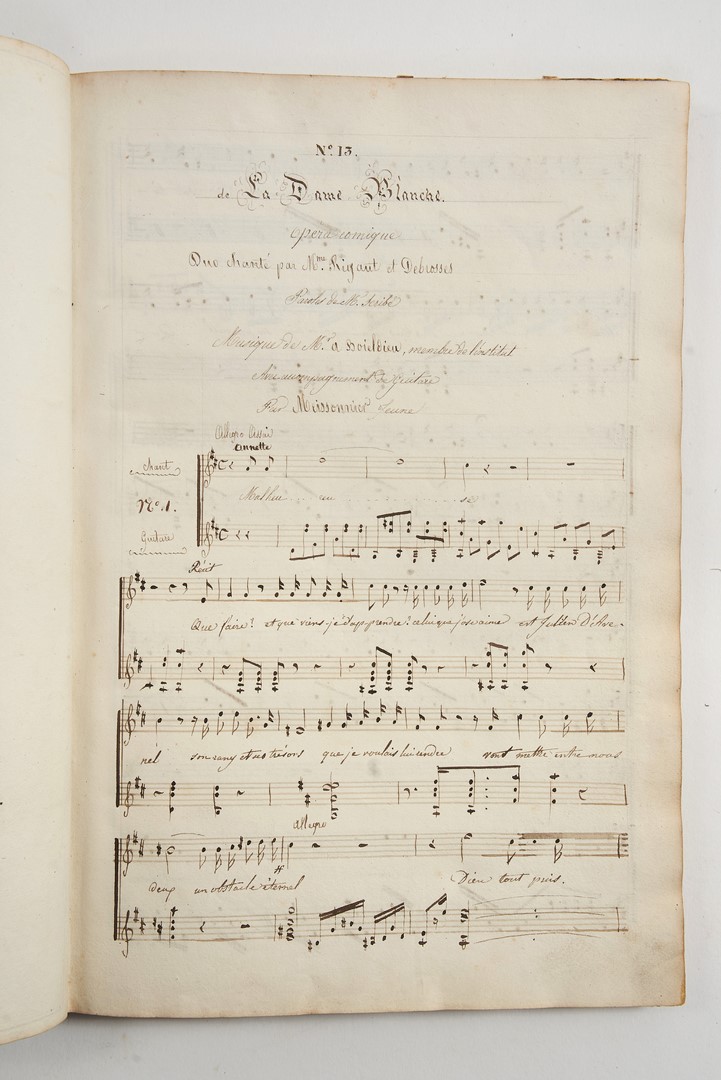 Nº 13.
de La Dame Blanche.
opera comique
Duo chanté par Mme. Rigaut et Debrosses
Paroles de Mr. Scribe
Musique de Mr. a Boieldieu, membre de l'institut
Avec accompagnement de guitare
Par Meissonnier Jeune
Allegro Assai
annette
chant
Malheu . . . reu . . . . . . . . . se
Nº 1.
Guitare
Récit
Que faire! et que viens-je d'ap-prendre? celui que j'ose aimer est Julien D'Ave-
nel son rang et ses trésors que je voulais lui rendre vont mettre entre nous
Allegro
deux un obstacle éternel Dieu tout puis.